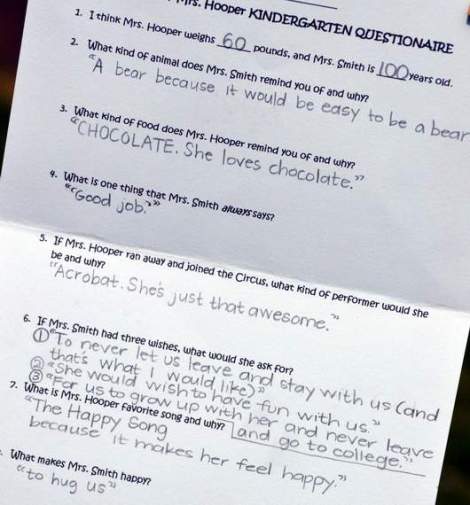 Mrs. Hooper KINDERGARTEN QUESTIONAIRE
1. I think Mrs. Hooper weighs 60 pounds, and Mrs. Smith is 100 years old.
2. What kind of animal does Mrs. Smith remind you of and why?
"A bear because it would be easy to be a bear
3. What kind of food does Mrs. Hooper remind you of and why?
"CHOCOLATE. She loves chocolate."
4. What is one thing that Mrs. Smith always says?
"Good job."
5. If Mrs. Hooper ran away and joined the Circus, what kind of performer would she
be and why?
"Acrobat. She's just that awesome."
6. If Mrs. Smith had three wishes, what would she ask for?
① "To never let us leave and stay with us (and
that's what I would like)"
② "She would wish to have fun with us."
③ "For us to grow up with her and never leave
7. What is Mrs. Hooper favorite song and why?
and go to college."
"The Happy Song
because it makes her feel happy."
. What makes Mrs. Smith happy?
"to hug us"